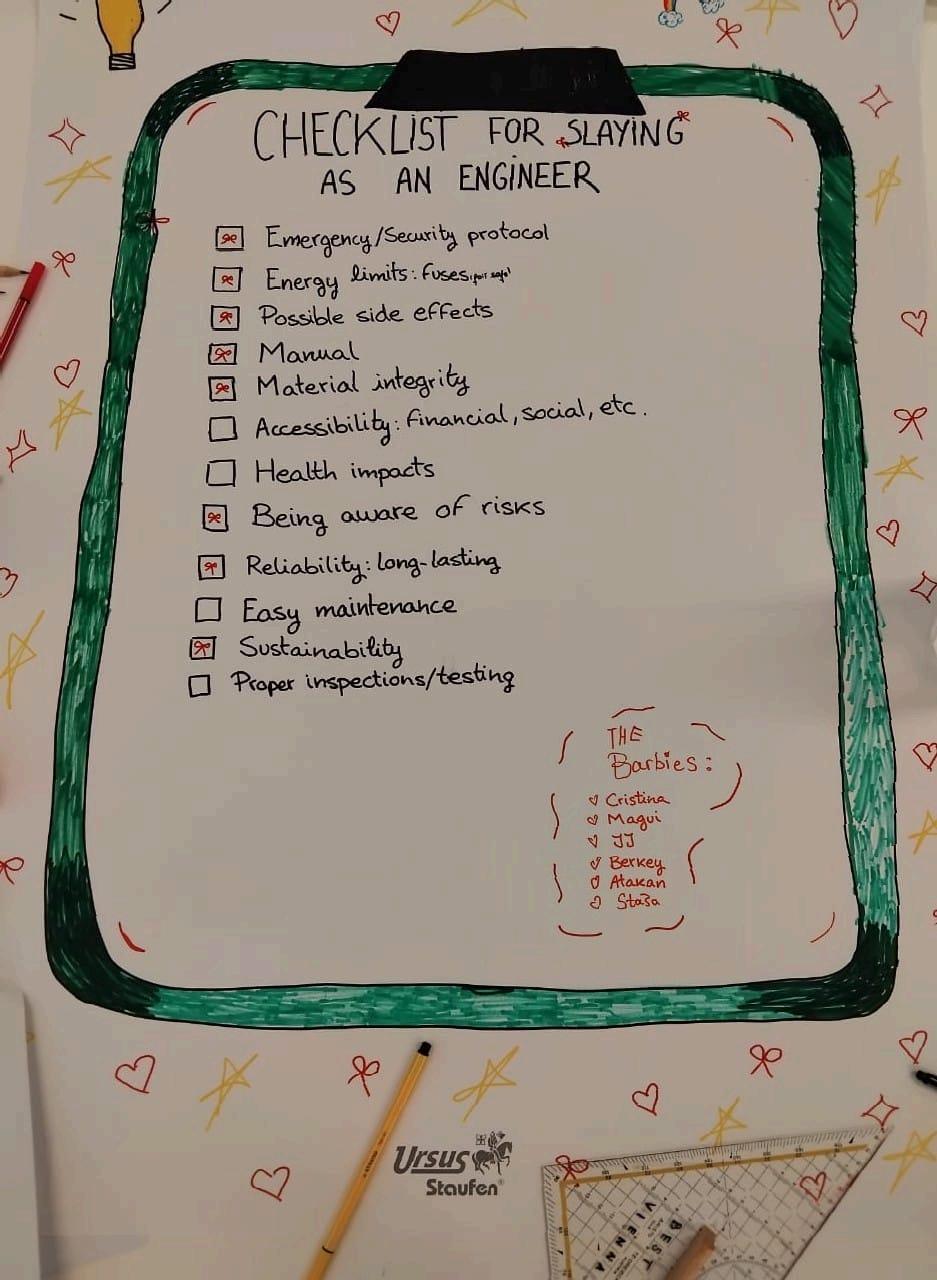 CHECKLIST FOR SLAYING
AS AN ENGINEER
Emergency/Security protocol
Energy limits: fuses
Possible side effects
Manual
Material integrity
Accessibility: financial, social, etc.
Health impacts
Being aware of risks
Reliability: long-lasting
Easy maintenance
Sustainability
Proper inspections/testing
THE
Barbies:
Cristina
Magui
JJ
Berkey
Atakan
Ursus
Staufen®
BEST
VIENNA